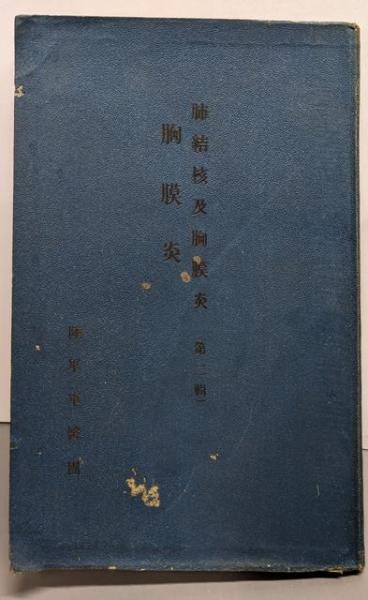 肺結核及胸膜炎（第二輯）
胸膜炎
陸軍軍醫團